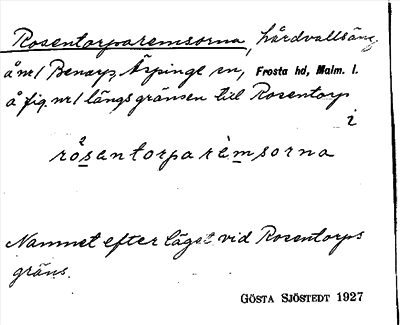 Rosentorparemsorna, hårdvallsäng.
å nr 1 Benarp, Arpinge sn, Frosta hd, Malm. l.
å fig. nr 1 längs gränsen till Rosentorp
i
rosantorparèmsorna
Namnet efter läget vid Rosentorps
gräns.
GÖSTA SJÖSTEDT 1927